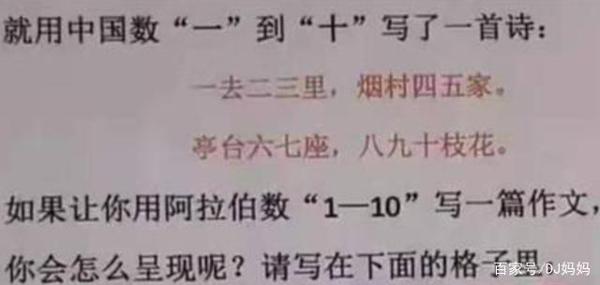 就用中国数“一”到“十”写了一首诗：
一去二三里，烟村四五家。
亭台六七座，八九十枝花。
如果让你用阿拉伯数“1—10”写一篇作文，
你会怎么呈现呢？请写在下面的格子里。
百家号/DJ妈妈